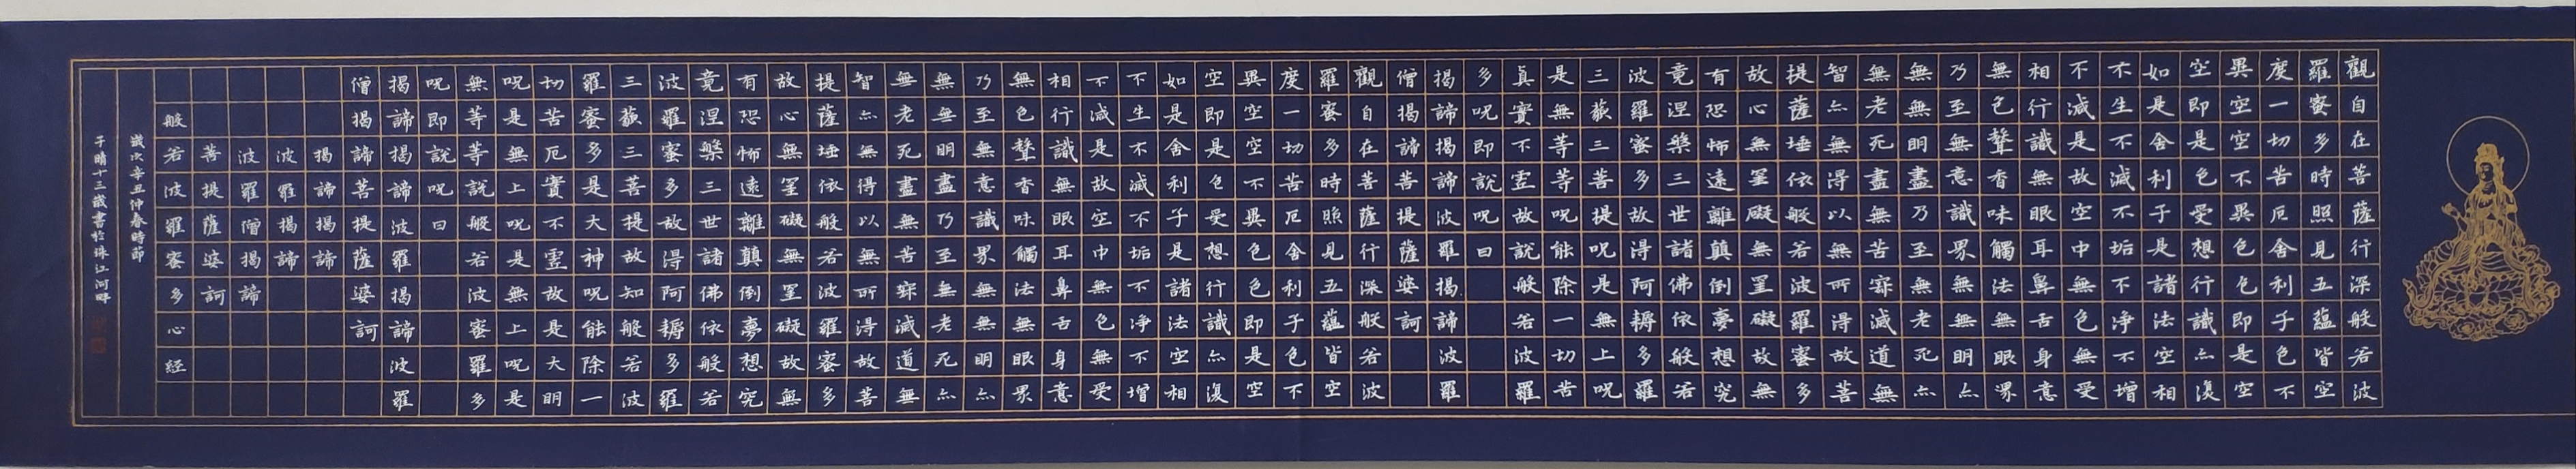 觀自在菩薩行深般若波
羅蜜多時照見五蘊皆空
度一切苦厄舍利子色不
異空空不異色色即是空
空即是色受想行識亦復
如是舍利子是諸法空相
不生不滅不垢不淨不增
不減是故空中無色無受
相行識無眼耳鼻舌身意
無色聲香味觸法無眼界
乃至無意識界無無明亦
無無明盡乃至無老死亦
無老死盡無苦寂滅道無
智亦無得以無所得故菩
提薩埵依般若波羅蜜多
故心無罣礙無罣礙故無
有恐怖遠離顛倒夢想究
竟涅槃三世諸佛依般若
波羅蜜多故得阿耨多羅
三藐三菩提呪是無上呪
是無等等呪能除一切苦
真實不虛故說般若波羅
多呪即說呪曰
揭諦揭諦波羅揭諦波羅
僧揭諦菩提薩婆訶
觀自在菩薩行深般若波
羅蜜多時照見五蘊皆空
度一切苦厄舍利子色不
異空空不異色色即是空
空即是色受想行識亦復
如是舍利子是諸法空相
不生不滅不垢不淨不增
不減是故空中無色無受
相行識無眼耳鼻舌身意
無色聲香味觸法無眼界
乃至無意識界無無明亦
無無明盡乃至無老死亦
無老死盡無苦寂滅道無
智亦無得以無所得故菩
提薩埵依般若波羅蜜多
故心無罣礙無罣礙故無
有恐怖遠離顛倒夢想究
竟涅槃三世諸佛依般若
波羅蜜多故得阿耨多羅
三藐三菩提故知般若波
羅蜜多是大神呪能除一
切苦厄實不虛故是大明
呪是無上呪是無上呪是
無等等說般若波蜜羅多
呪即說呪曰
揭諦揭諦波羅揭諦波羅
僧揭諦菩提薩婆訶
揭諦揭諦
波羅揭諦
波羅僧揭諦
菩提薩婆訶
般若波羅蜜多心経
歲次辛丑仲春時節
于晴十三歲書於珠江河畔